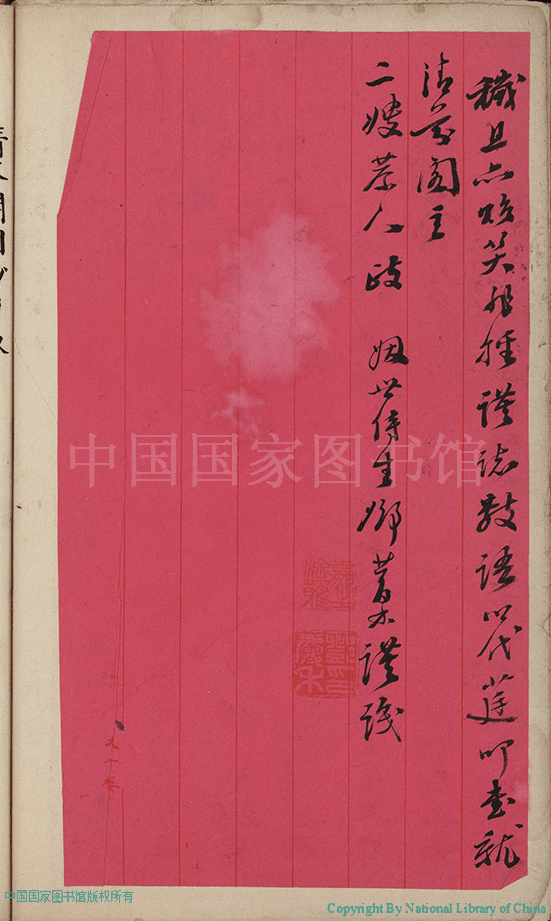 穢且亦貽笑非輕謹志數語以代莛叩書就
清芬閣主
二嫂恭人政 姻世侍生鄭叢木謹識
中国国家图书馆
中国国家图书馆版权所有
Copyright By National Library of China